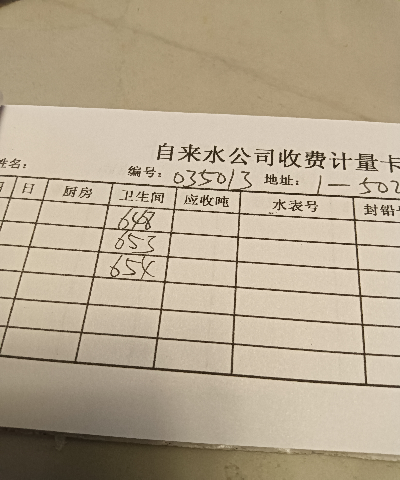 自来水公司收费计量卡
姓名： 编号：035013 地址：1-502
日 厨房 卫生间 应收吨 水表号 封铅号
648
653
654